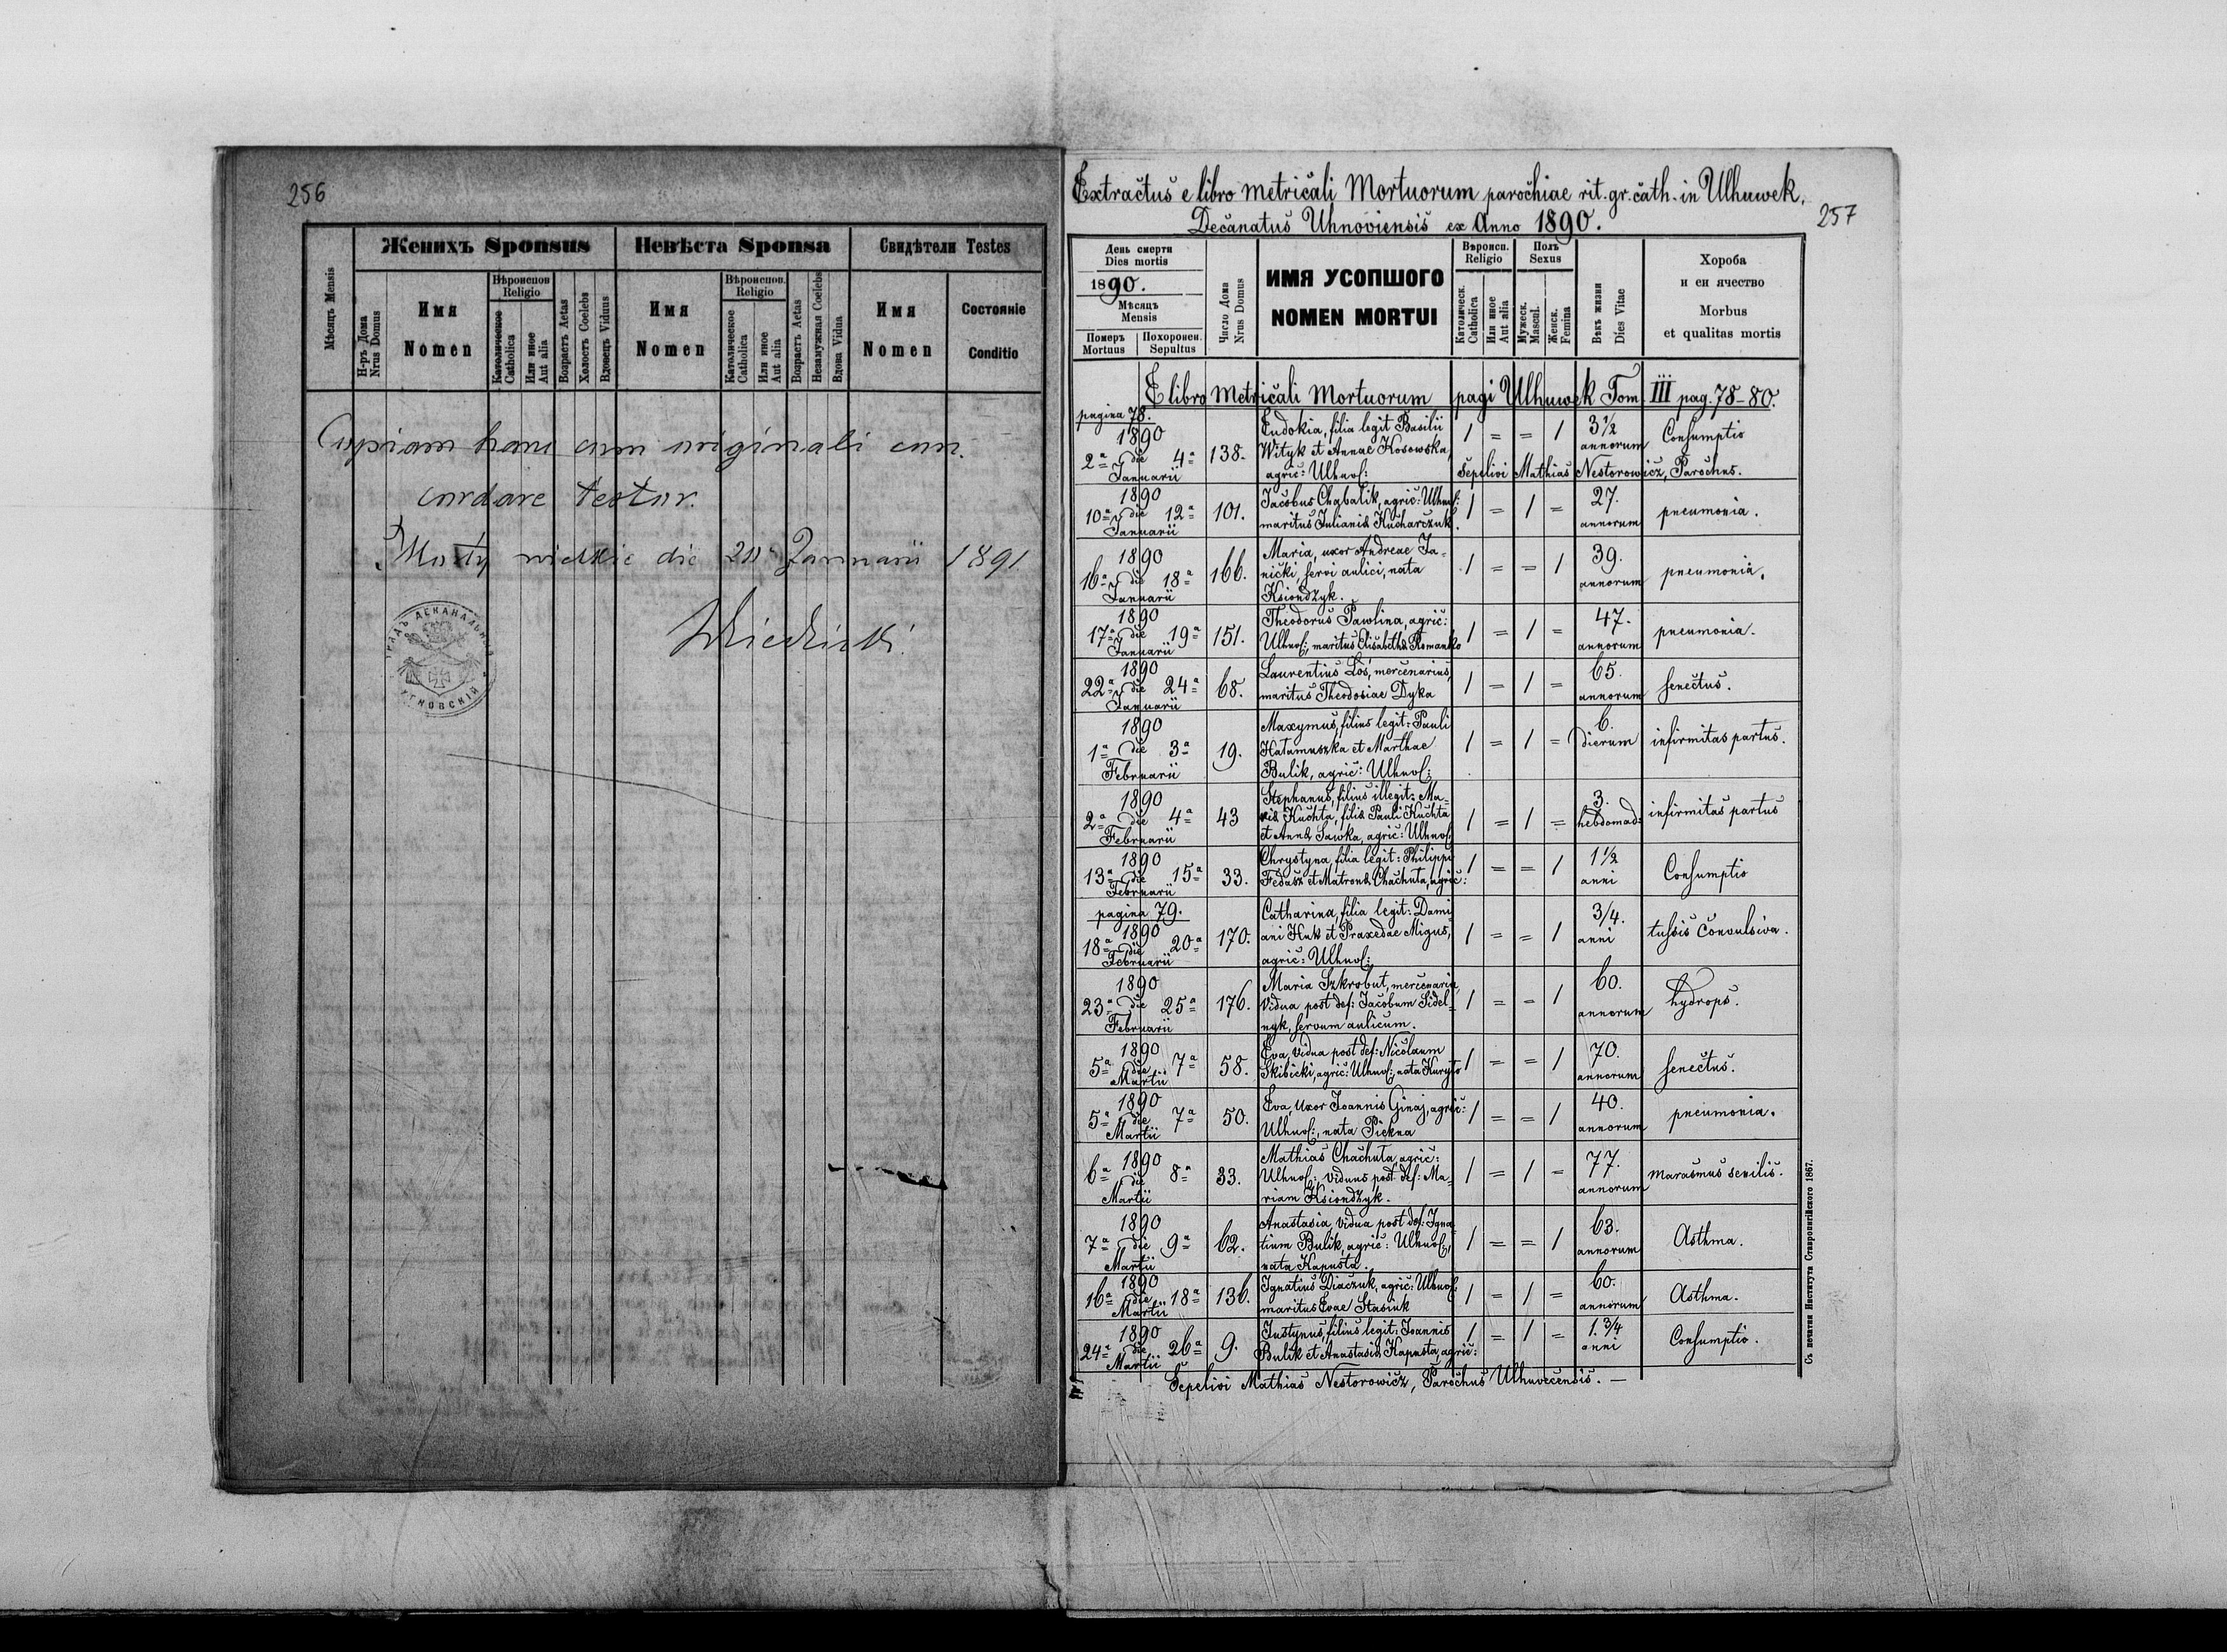 256
Женихъ Sponsus
Невѣста Sponsa
Свидѣтели Testes
Мѣсяцъ Mensis
Н-ръ Дома
Nrus Domus
Имя
Nomen
Вѣроиспов
Religio
Католическое
Catholica
Или иное
Aut alia
Возрастъ Aetas
Холостъ Coelebs
Вдовецъ Viduus
Имя
Nomen
Вѣроиспов.
Religio
Католическое
Catholica
Или иное
Aut alia
Возрастъ Aetas
Незамужная Coelebs
Вдова Vidua
Имя
Nomen
Состояніе
Conditio
Copiam hanc cum originali con-
cordare testor.
Mosty wielkie die 20 Januarii 1891
Extractus e libro metricali Mortuorum parochiae rit. gr. cath. in Ulhuwek,
Decanatus Uhnoviensis ex Anno 1890.
257
День смерти
Dies mortis
1890.
Мѣсяцъ
Mensis
Померъ
Mortuus
Похоронен.
Sepultus
Число Дома
Nrus Domus
ИМЯ УСОПШОГО
NOMEN MORTUI
Вѣроисп.
Religio
Католическ.
Catholica
Или иное
Aut alia
Полъ
Sexus
Мужеск.
Mascul.
Женск.
Femina
Вѣкъ жизни
Dies Vitae
Хороба
и еи ячество
Morbus
et qualitas mortis
E libro Metricali Mortuorum pagi Ulhuwek Tom. III pag. 78-80.
pagina 78.
1890
2ª die 4ª
Januarii
138.
Eudokia, filia legit Basilii
Wityk et Annae Kosowska,
agric: Ulhuv:
1 = = 1
3½
annorum
Consumptio
Sepelivi Mathias Nestorowicz, Parochus.
1890
10ª die 12ª
Januarii
101.
Jacobus Chabalik, agric: Ulhuv:
maritus Julianae Kucharczuk.
1 = 1 =
27.
annorum
pneumonia.
1890
16ª die 18ª
Januarii
166.
Maria, uxor Andreae Ja-
nicki, servi aulici, nata
Ksiondzyk.
1 = = 1
39.
annorum
pneumonia.
1890
17ª die 19ª
Januarii
151.
Theodorus Pawlina, agric:
Ulhuv:, maritus Elisabethae Romanko
1 = 1 =
47.
annorum
pneumonia.
1890
22ª die 24ª
Januarii
68.
Laurentius Łoś, mercenarius,
maritus Theodosiae Dyka
1 = 1 =
65.
annorum
senectus.
1890
1ª die 3ª
Februarii
19.
Maxymus, filius legit: Pauli
Hałamuszka et Marthae
Bulik, agric: Ulhuv:
1 = 1 =
6.
dierum
infirmitas partus.
1890
2ª die 4ª
Februarii
43
Stephanus, filius illegit: Ma-
riae Kuchta, filiae Pauli Kuchta
et Annae Sawka, agric: Ulhuv:
1 = 1 =
3.
hebdomad:
infirmitas partus
1890
13ª die 15ª
Februarii
33.
Chrystyna, filia legit: Philippi
Fedasz et Matronae Chachuta, agric:
1 = = 1
1½
anni
Consumptio
pagina 79.
1890
18ª die 20ª
Februarii
170.
Catharina, filia legit: Dami-
ani Huk et Praxedae Migus,
agric: Ulhuv:
1 = = 1
3/4.
anni
tussis convulsiva.
1890
23ª die 25ª
Februarii
176.
Maria Szkrobut, mercenaria,
vidua post def: Jacobum Sidel-
nyk, servum aulicum.
1 = = 1
60.
annorum
hydrops.
1890
5ª die 7ª
Martii
58.
Eva, vidua post def: Nicolaum
Skibicki, agric: Ulhuv:, nata Kuryło
1 = = 1
70.
annorum
senectus.
1890
5ª die 7ª
Martii
50.
Eva, uxor Joannis Ginaj, agric:
Ulhuv:, nata Piekna
1 = = 1
40.
annorum
pneumonia.
1890
6ª die 8ª
Martii
33.
Mathias Chachuta, agric:
Ulhuv:, viduus post def: Ma-
riam Ksiondzyk.
1 = 1 =
77.
annorum
marasmus senilis.
1890
7ª die 9ª
Martii
62.
Anastasia, vidua post def: Igna-
tium Bulik, agric: Ulhuv:,
nata Kapusta.
1 = = 1
63.
annorum
Asthma.
1890
16ª die 18ª
Martii
136.
Ignatius Diaczuk, agric: Ulhuv:
maritus Evae Stasiuk
1 = 1 =
60.
annorum
Asthma.
1890
24ª die 26ª
Martii
9.
Justynus, filius legit: Joannis
Bulik et Anastasiae Kapusta, agric:
1 = 1 =
1. 3/4
anni
Consumptio.
Sepelivi Mathias Nestorowicz, Parochus Ulhuvecensis. —
Съ печатни Института Ставропигійского 1867.